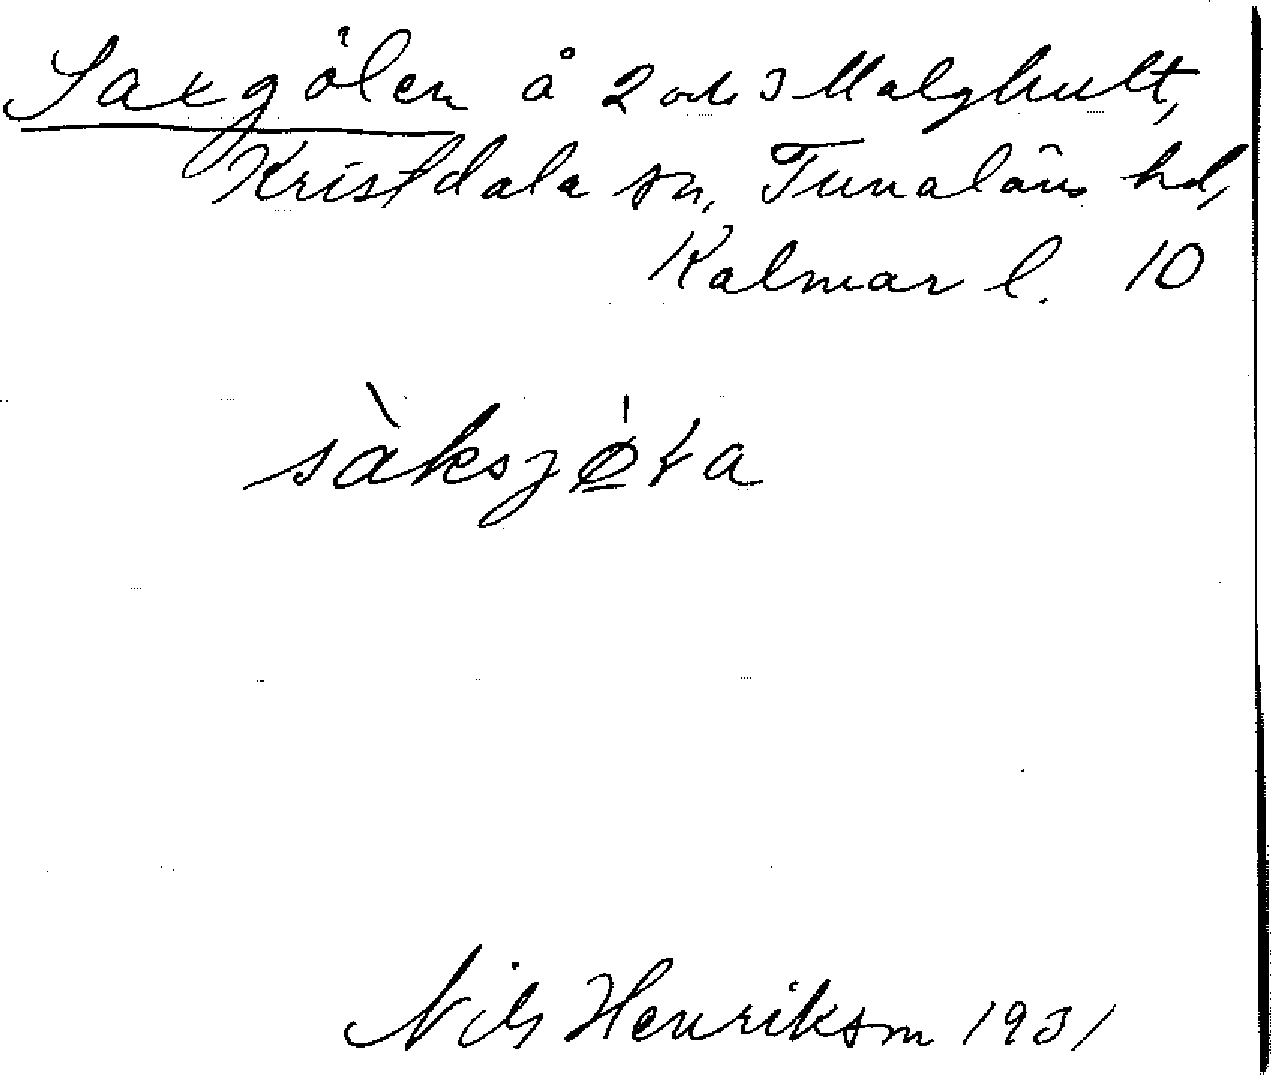 Saxgölen å 2 och 3 Malghult,
Kristdala sn, Tunaläns hd,
Kalmar l. 10
sàksjø̱ta
Nils Henrikson 1931